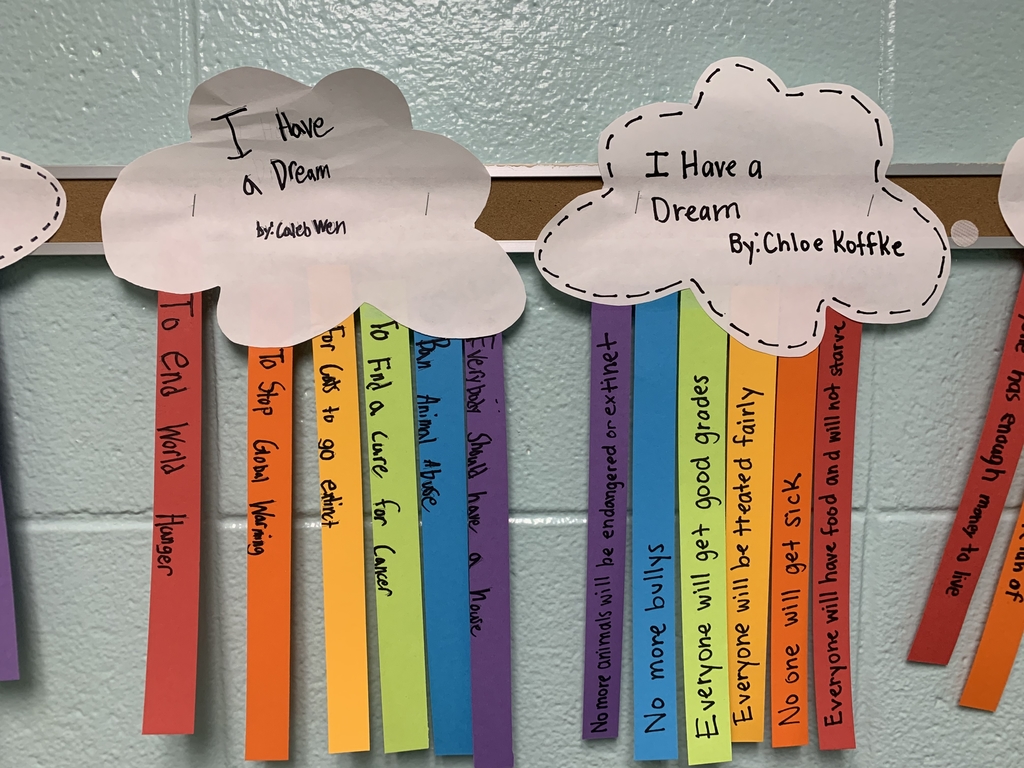 I Have
a Dream
by: Caleb Wen
To end World Hunger
To Stop Global Warming
For Cats to go extinct
To Find a Cure for Cancer
Ban Animal Abuse
Everybody Should have a house
I Have a
Dream
By: Chloe Koffke
No more animals will be endangered or extinct
No more bullys
Everyone will get good grades
Everyone will be treated fairly
No one will get sick
Everyone will have food and will not starve
has enough money to live
of